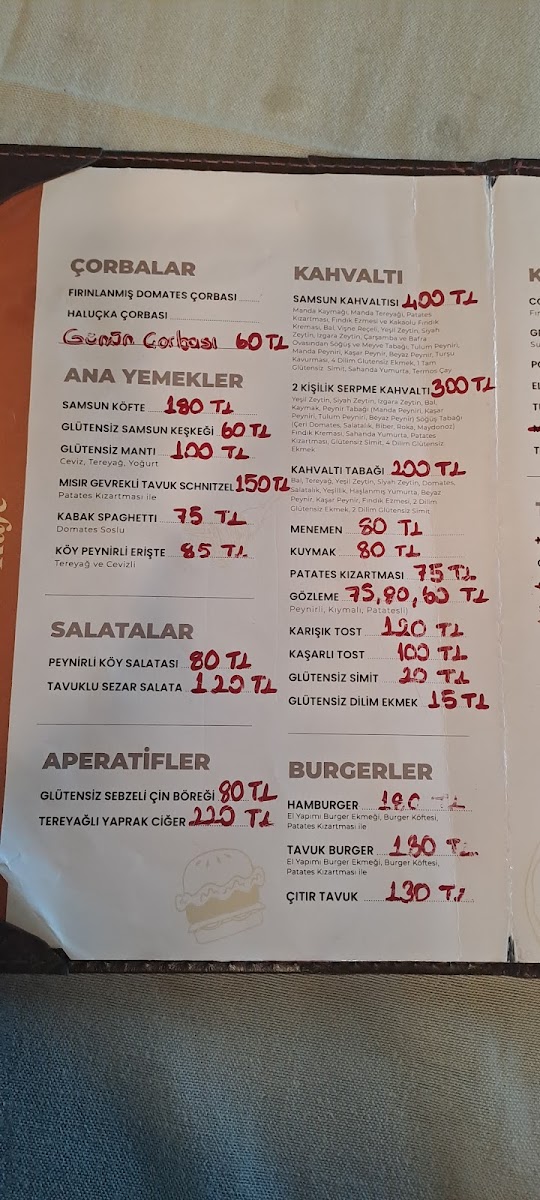 ÇORBALAR
FIRINLANMIŞ DOMATES ÇORBASI
HALUÇKA ÇORBASI
Günün Çorbası 60 TL
ANA YEMEKLER
SAMSUN KÖFTE 180 TL
GLÜTENSİZ SAMSUN KEŞKEĞİ 60 TL
GLÜTENSİZ MANTI 100 TL
Ceviz, Tereyağ, Yoğurt
MISIR GEVREKLİ TAVUK SCHNITZEL 150 TL
Patates Kızartması ile
KABAK SPAGHETTI 75 TL
Domates Soslu
KÖY PEYNİRLİ ERİŞTE 85 TL
Tereyağ ve Cevizli
SALATALAR
PEYNİRLİ KÖY SALATASI 80 TL
TAVUKLU SEZAR SALATA 120 TL
APERATİFLER
GLÜTENSİZ SEBZELİ ÇİN BÖREĞİ 80 TL
TEREYAĞLI YAPRAK CİĞER 220 TL
KAHVALTI
SAMSUN KAHVALTISI 400 TL
Manda Kaymağı, Manda Tereyağı, Patates
Kızartması, Fındık Ezmesi ve Kakaolu Fındık
Kreması, Bal, Vişne Reçeli, Yeşil Zeytin, Siyah
Zeytin, Izgara Zeytin, Çarşamba ve Bafra
Ovasından Söğüş ve Meyve Tabağı, Tulum Peyniri,
Manda Peyniri, Kaşar Peynir, Beyaz Peynir, Turşu
Kavurması, 4 Dilim Glutensiz Ekmek, 1 Tam
Glütensiz Simit, Sahanda Yumurta, Termos Çay
2 KİŞİLİK SERPME KAHVALTI 300 TL
Yeşil Zeytin, Siyah Zeytin, Izgara Zeytin, Bal,
Kaymak, Peynir Tabağı (Manda Peyniri, Kaşar
Peyniri, Tulum Peyniri, Beyaz Peynir) Söğüş Tabağı
(Çeri Domates, Salatalık, Biber, Roka, Maydonoz)
Fındık Kreması, Sahanda Yumurta, Patates
Kızartması, Glütensiz Simit, 4 Dilim Glütensiz
Ekmek
KAHVALTI TABAĞI 200 TL
Bal, Tereyağ, Yeşil Zeytin, Siyah Zeytin, Domates,
Salatalık, Yeşillik, Haşlanmış Yumurta, Beyaz
Peynir, Kaşar Peynir, Fındık Ezmesi, 2 Dilim
Glütensiz Ekmek, 2 Dilim Glütensiz Simit
MENEMEN 80 TL
KUYMAK 80 TL
PATATES KIZARTMASI 75 TL
GÖZLEME 75, 80, 60 TL
Peynirli, Kıymalı, Patatesli)
KARIŞIK TOST 120 TL
KAŞARLI TOST 100 TL
GLÜTENSİZ SİMİT 20 TL
GLÜTENSİZ DİLİM EKMEK 15 TL
BURGERLER
HAMBURGER 180 TL
El Yapımı Burger Ekmeği, Burger Köftesi,
Patates Kızartması ile
TAVUK BURGER 130 TL
El Yapımı Burger Ekmeği, Burger Köftesi,
Patates Kızartması ile
ÇITIR TAVUK 130 TL